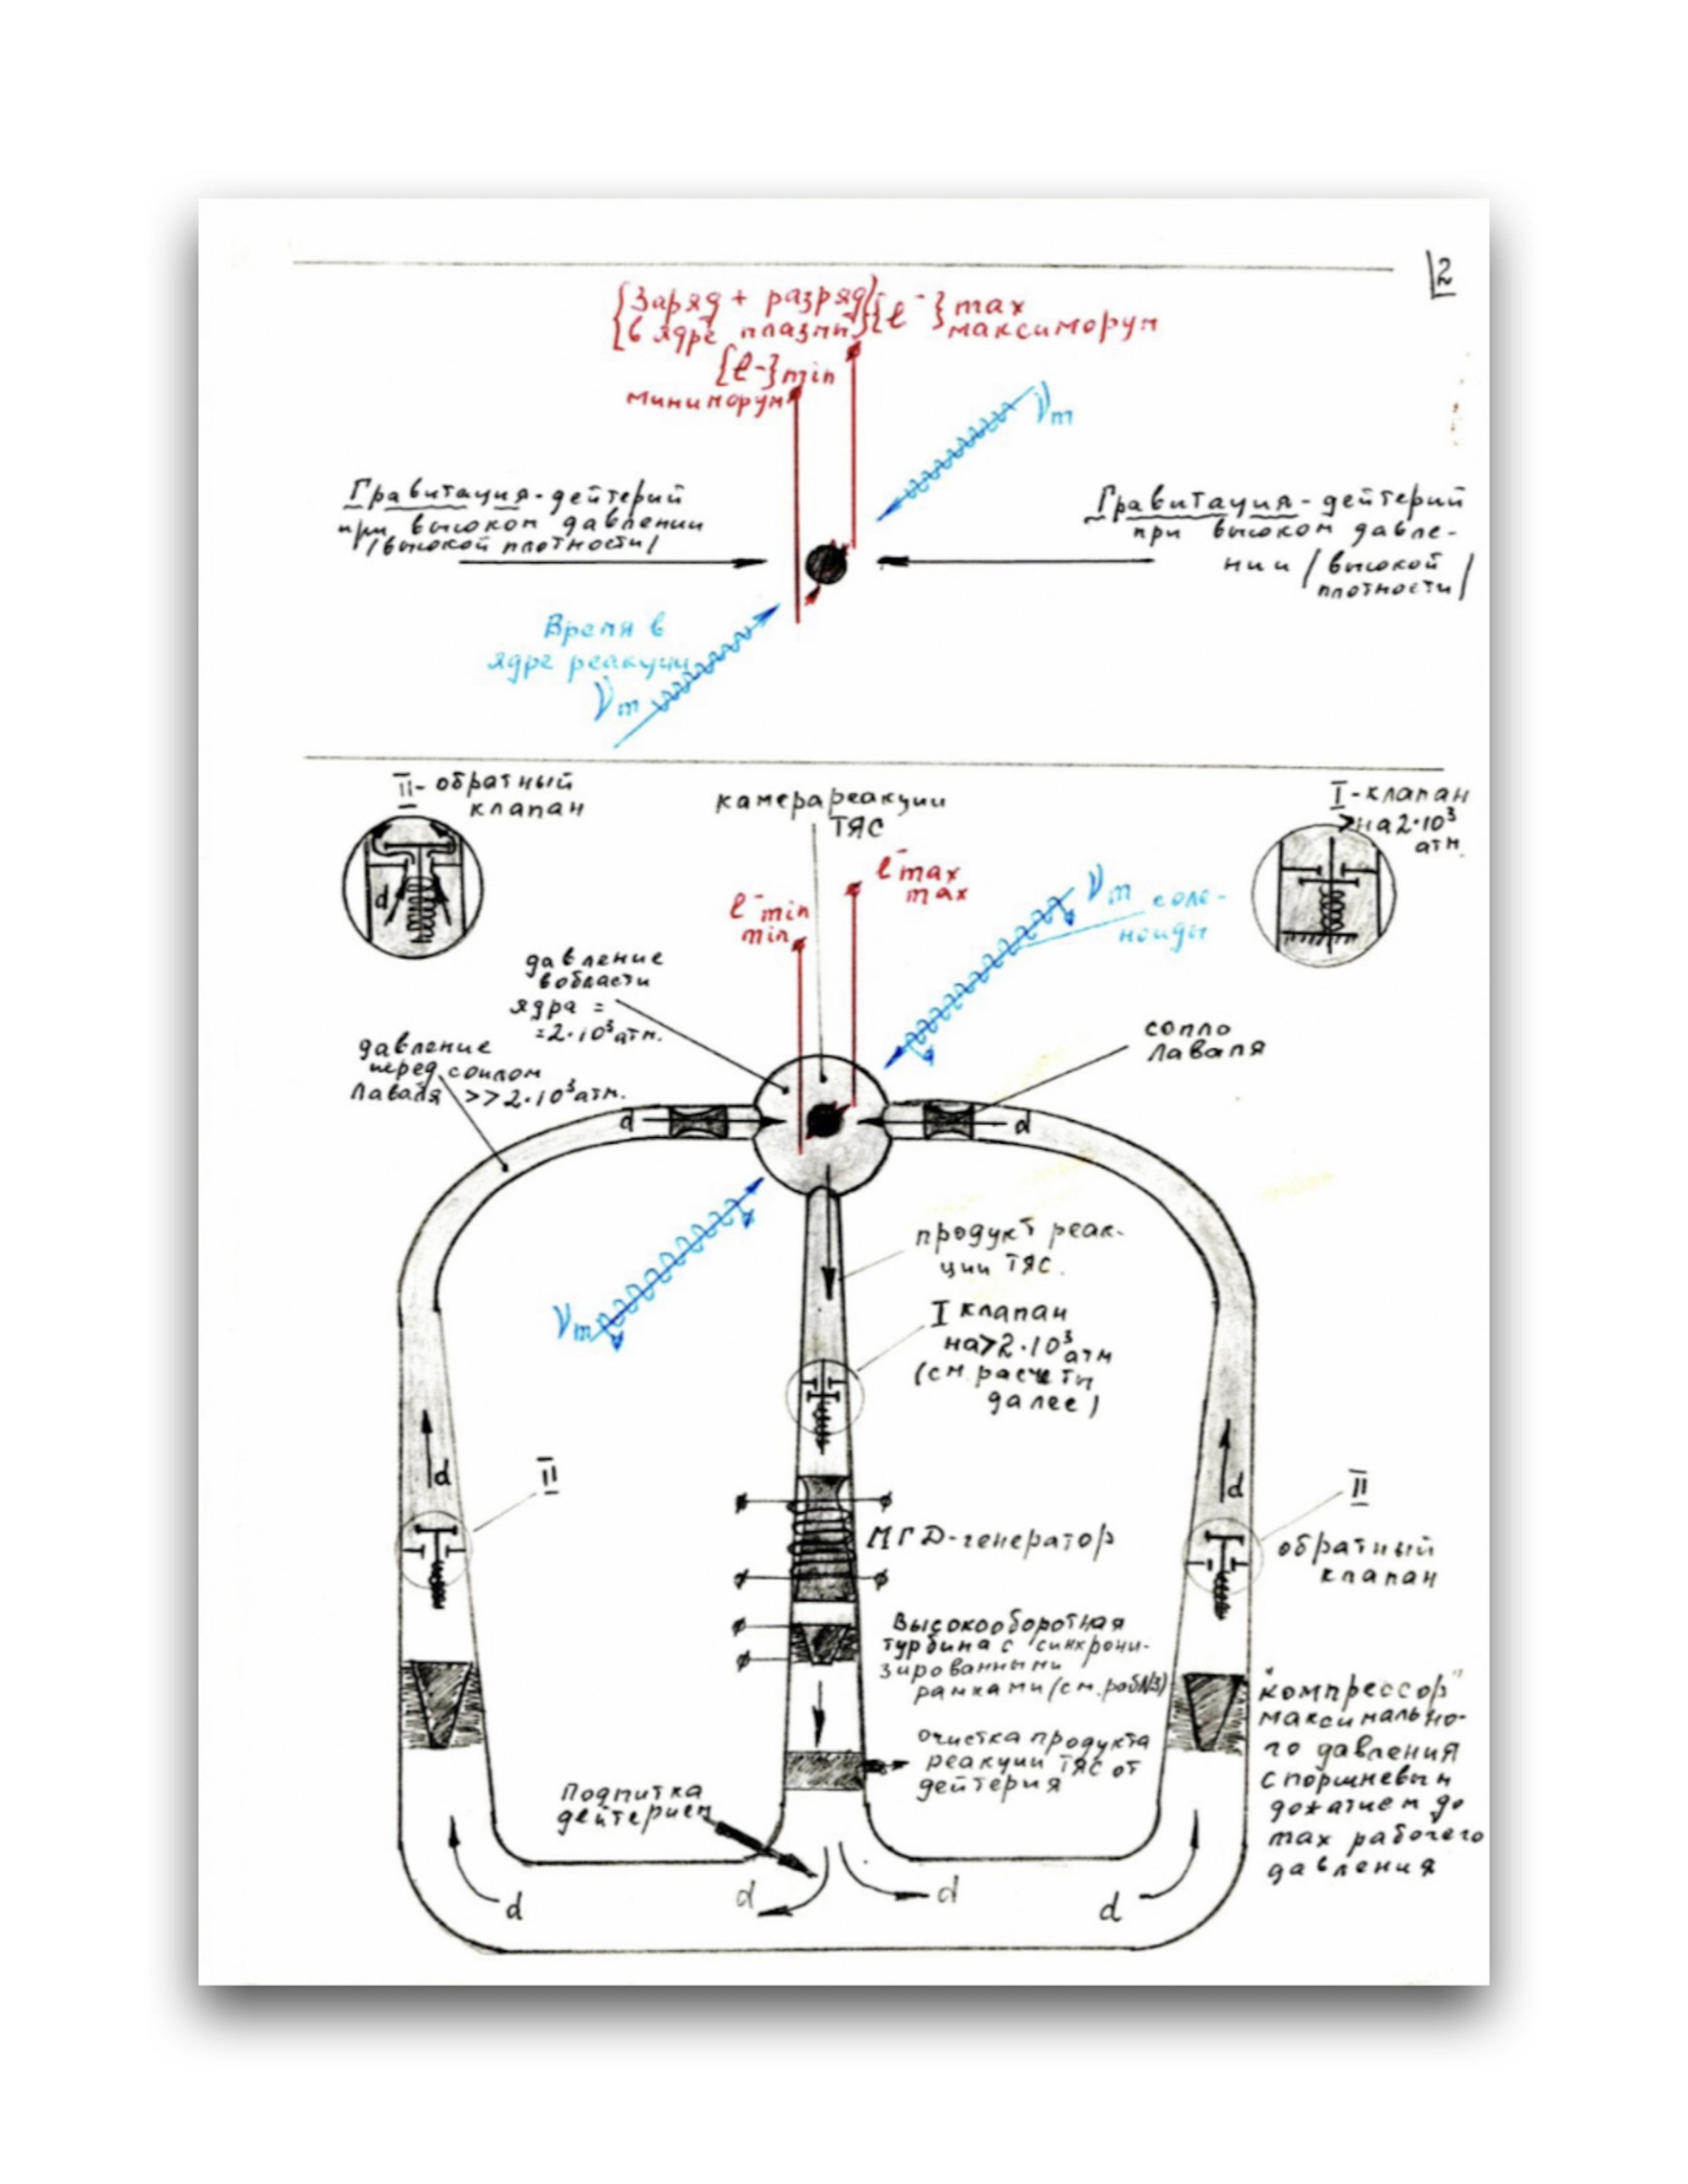 2
{Заряд + разряд}
{в ядре плазмы}
{e⁻} max
максиморум
{e-} min
миниморум
νm
Гравитация-дейтерий
при высоком давлении
/высокой плотности/
Гравитация-дейтерий
при высоком давле-
нии /высокой
плотности/
Время в
ядре реакции
νm
II- обратный
клапан
d
камера реакции
ТЯС
I-клапан
>на 2·10³
атм.
e⁻max
max
e⁻min
min
νm соле-
ноиды
давление
в области
ядра =
=2·10³ атм.
давление
перед соплом
Лаваля >>2·10³ атм.
сопло
Лаваля
d
d
νm
продукт реак-
ции ТЯС.
I клапан
на>2·10³
атм
(см. расчеты
далее)
d
II
d
II
обратный
клапан
МГД-генератор
Высокооборотная
турбина с синхрони-
зированными
рамками (см. раб№3)
"компрессор"
максимально-
го давления
с поршневым
дожатием до
max рабочего
давления
очистка продукта
реакции ТЯС от
дейтерия
Подпитка
дейтерием
d
d
d
d